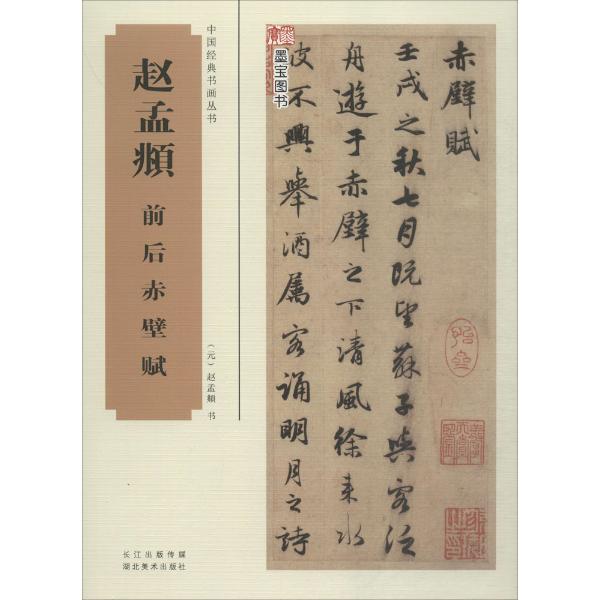 中国经典书画丛书
赵孟頫
前后赤壁赋
（元）赵孟頫 书
长江出版传媒
湖北美术出版社
墨宝图书
赤壁賦
壬戌之秋七月既望蘇子與客泛
舟遊于赤壁之下清風徐来水
波不興舉酒属客誦明月之詩